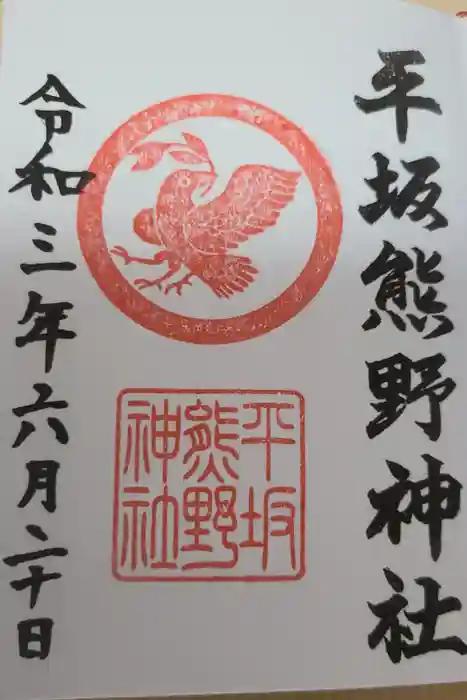 平坂熊野神社
平坂
熊野
神社
令和三年六月二十日